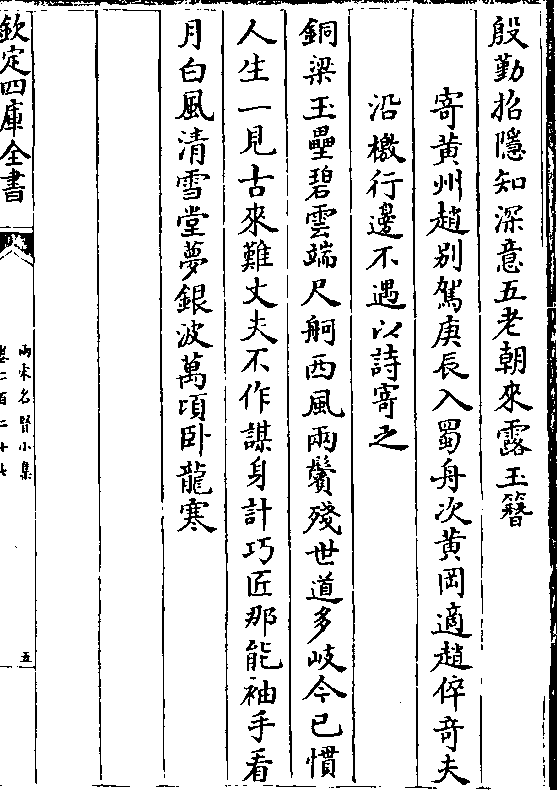 殷勤招隱知深意五老朝來露玉簪
寄黄州趙别駕庚辰入蜀舟次黄岡適趙倅奇夫
沿檄行邊不遇以詩寄之
銅梁玉壘碧雲端尺舸西風兩鬢殘世道多岐今已慣
人生一見古來難丈夫不作謀身計巧匠那能袖手看
月白風清雪堂夢銀波萬頃卧龍寒
欽定四庫全書
兩宋名賢小集
卷二百二十七
五